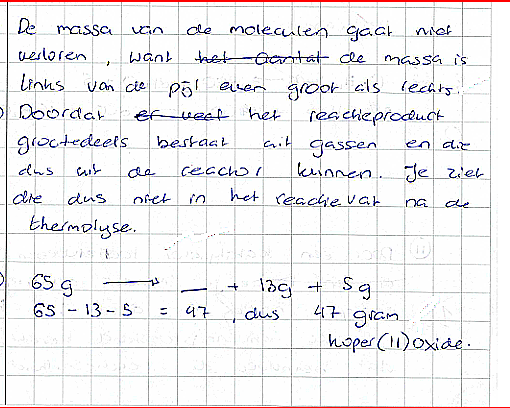 De massa van de moleculen gaat niet
verloren, want het aantal de massa is
links van de pijl even groot als rechts.
Doordat er veel het reactieproduct
grootedeels bestaat uit gassen en die
dus uit de reactor kunnen. Je ziet
die dus niet in het reactievat na de
thermolyse.
65 g ⟶ __ + 13g + 5g
65 - 13 - 5 = 47, dus 47 gram
koper(II)oxide.